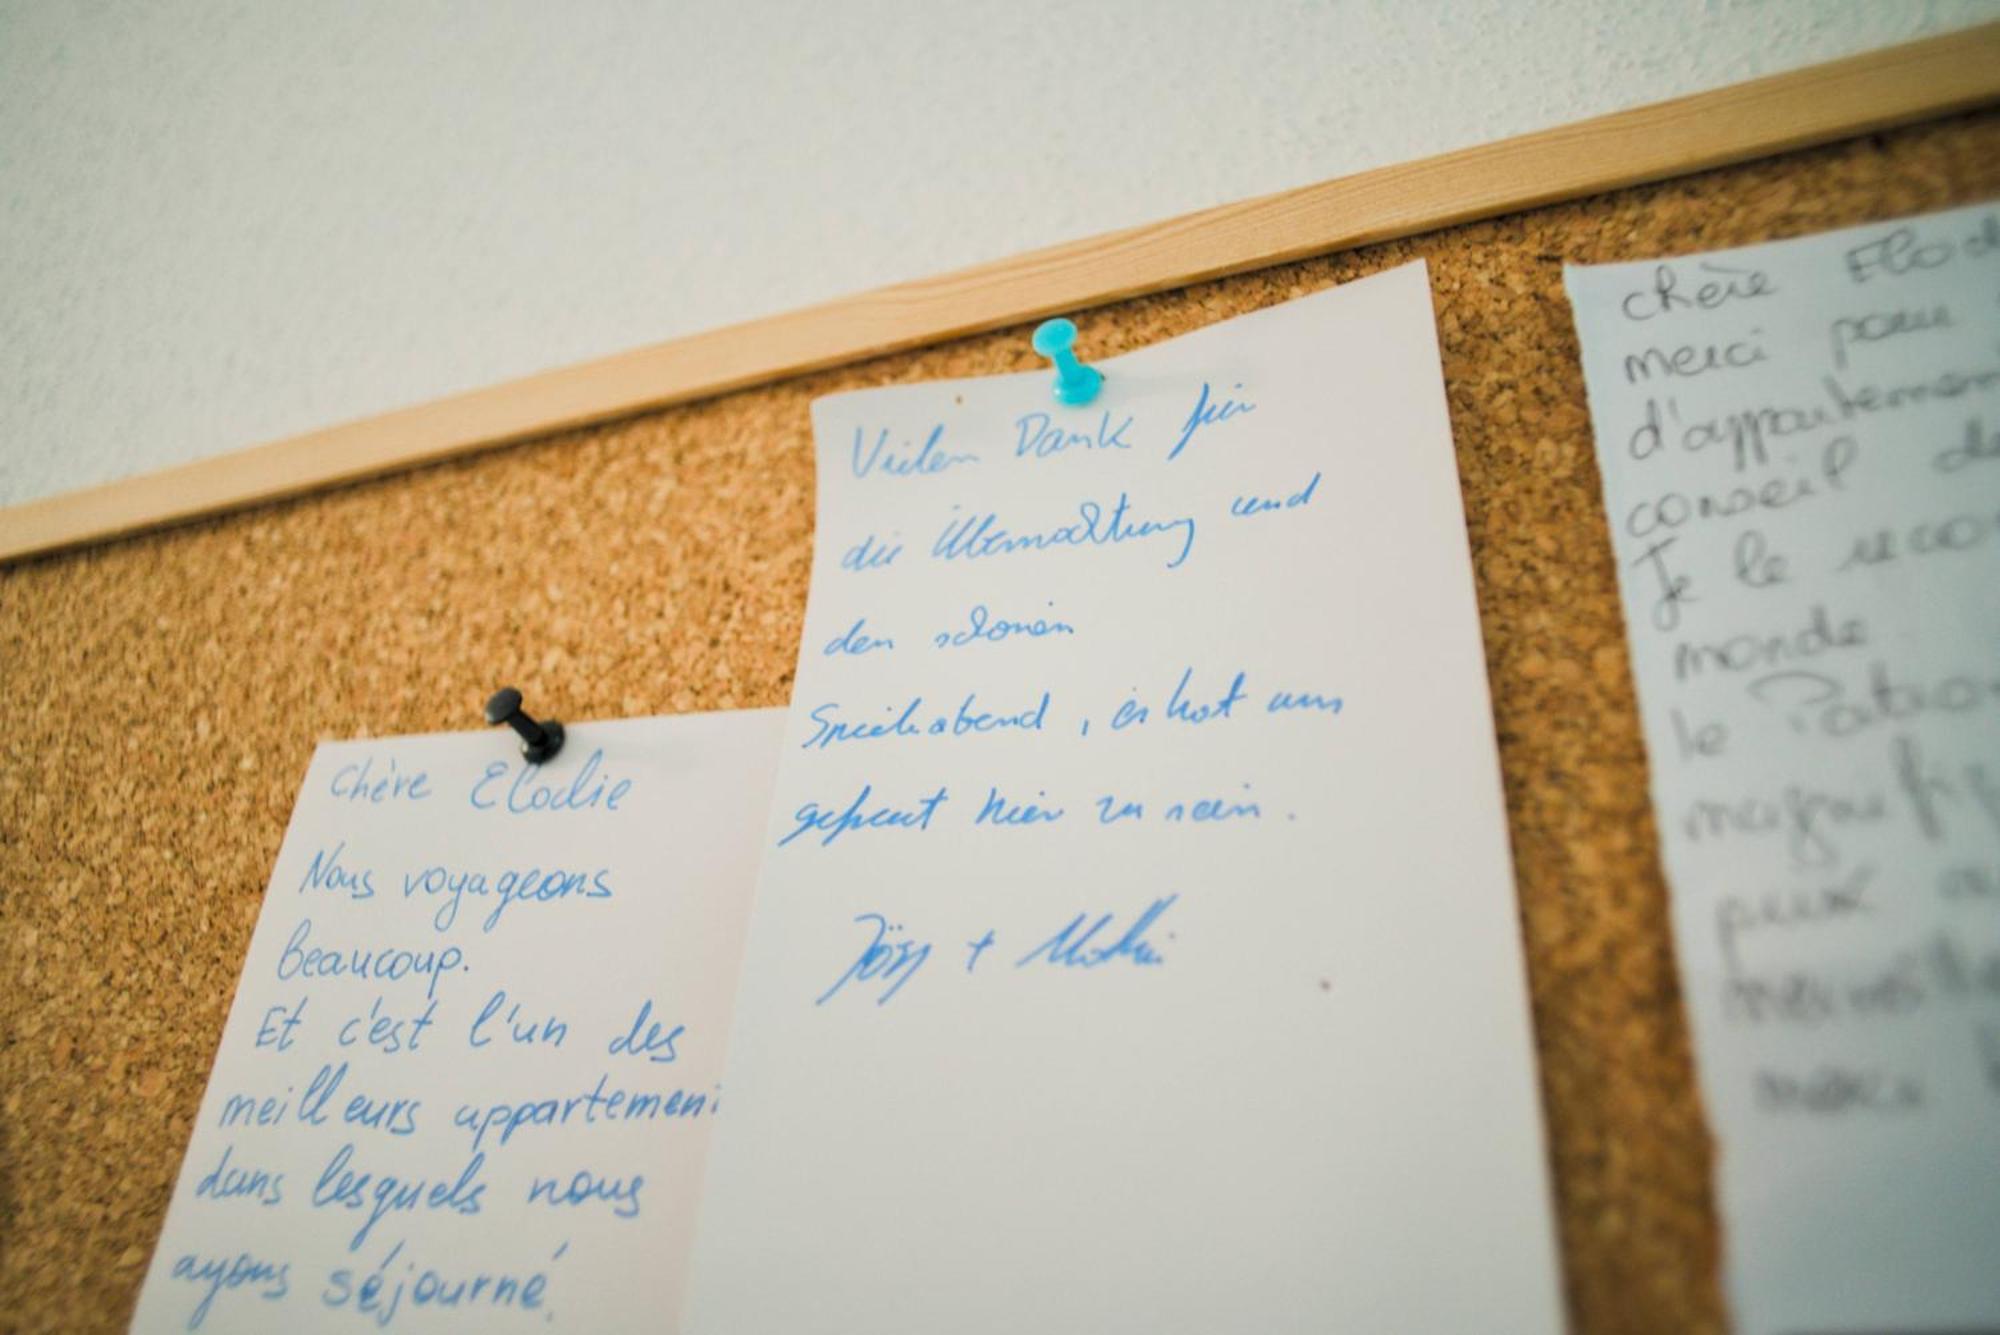 Chère Elodie
Nous voyageons
beaucoup.
Et c'est l'un des
meilleurs appartement
dans lesquels nous
ayons séjourné.
Vielen Dank für
die Übernachtung und
den schönen
Spieleabend, es hat uns
gefreut hier zu sein.
Jörg +
chère Elod
merci pour
d'appartement
conseil de
Je le reco
monde
le Patro
magnifi
pour
merveille
merci